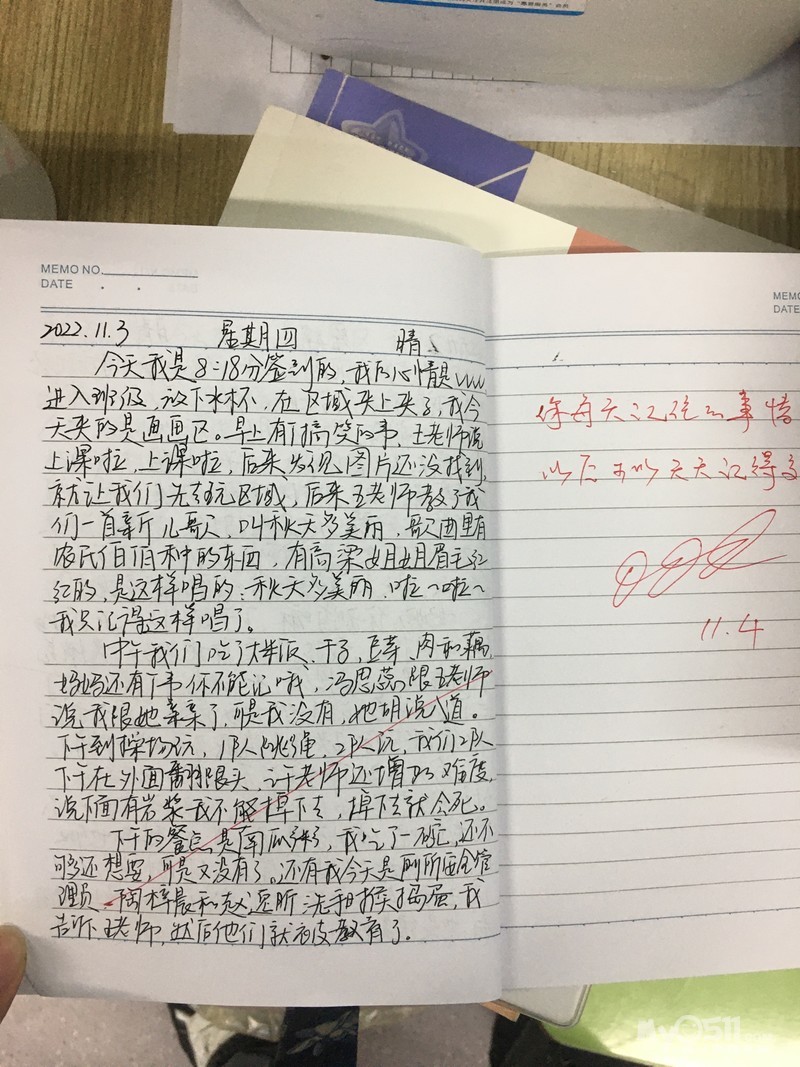 MEMO NO.
DATE . .
2022.11.3 星期四 晴
今天我是8:18分签到的,我的心情是vvvv
进入班级,放下水杯,在区域夹上夹子,我今
天夹的是画画区。早上有个搞笑的事,王老师说
上课啦,上课啦,后来发现图片还没找到,
就让我们先去玩区域,后来王老师教了我
们一首新儿歌,叫秋天多美丽,歌曲里有
农民伯伯种的东西,有高粱姐姐眉毛红
红的,是这样唱的:秋天多美丽,啦~啦~
我只记得这样唱了。
中午我们吃了大米饭、干子、豆芽、肉和藕,
妈妈还有个事你不能记哦,冯思蕊跟王老师
说我跟她亲亲了,可是我没有,她胡说八道。
下午到操场玩,1队人跳绳,2队玩,我们2队
下午在外面翻跟头,许老师还增加难度,
说下面有岩浆我不能掉下去,掉下去就会死。
下午的餐点是南瓜粥,我吃了一碗,还不
够还想要,可是又没有了。还有我今天是厕所安全管
理员,陶梓晨和赵 昕洗手捣蛋,我
告诉王老师,然后他们就被教育了。
MEMO
DATE
你每天记住的事情
以后可以天天记得
11.4